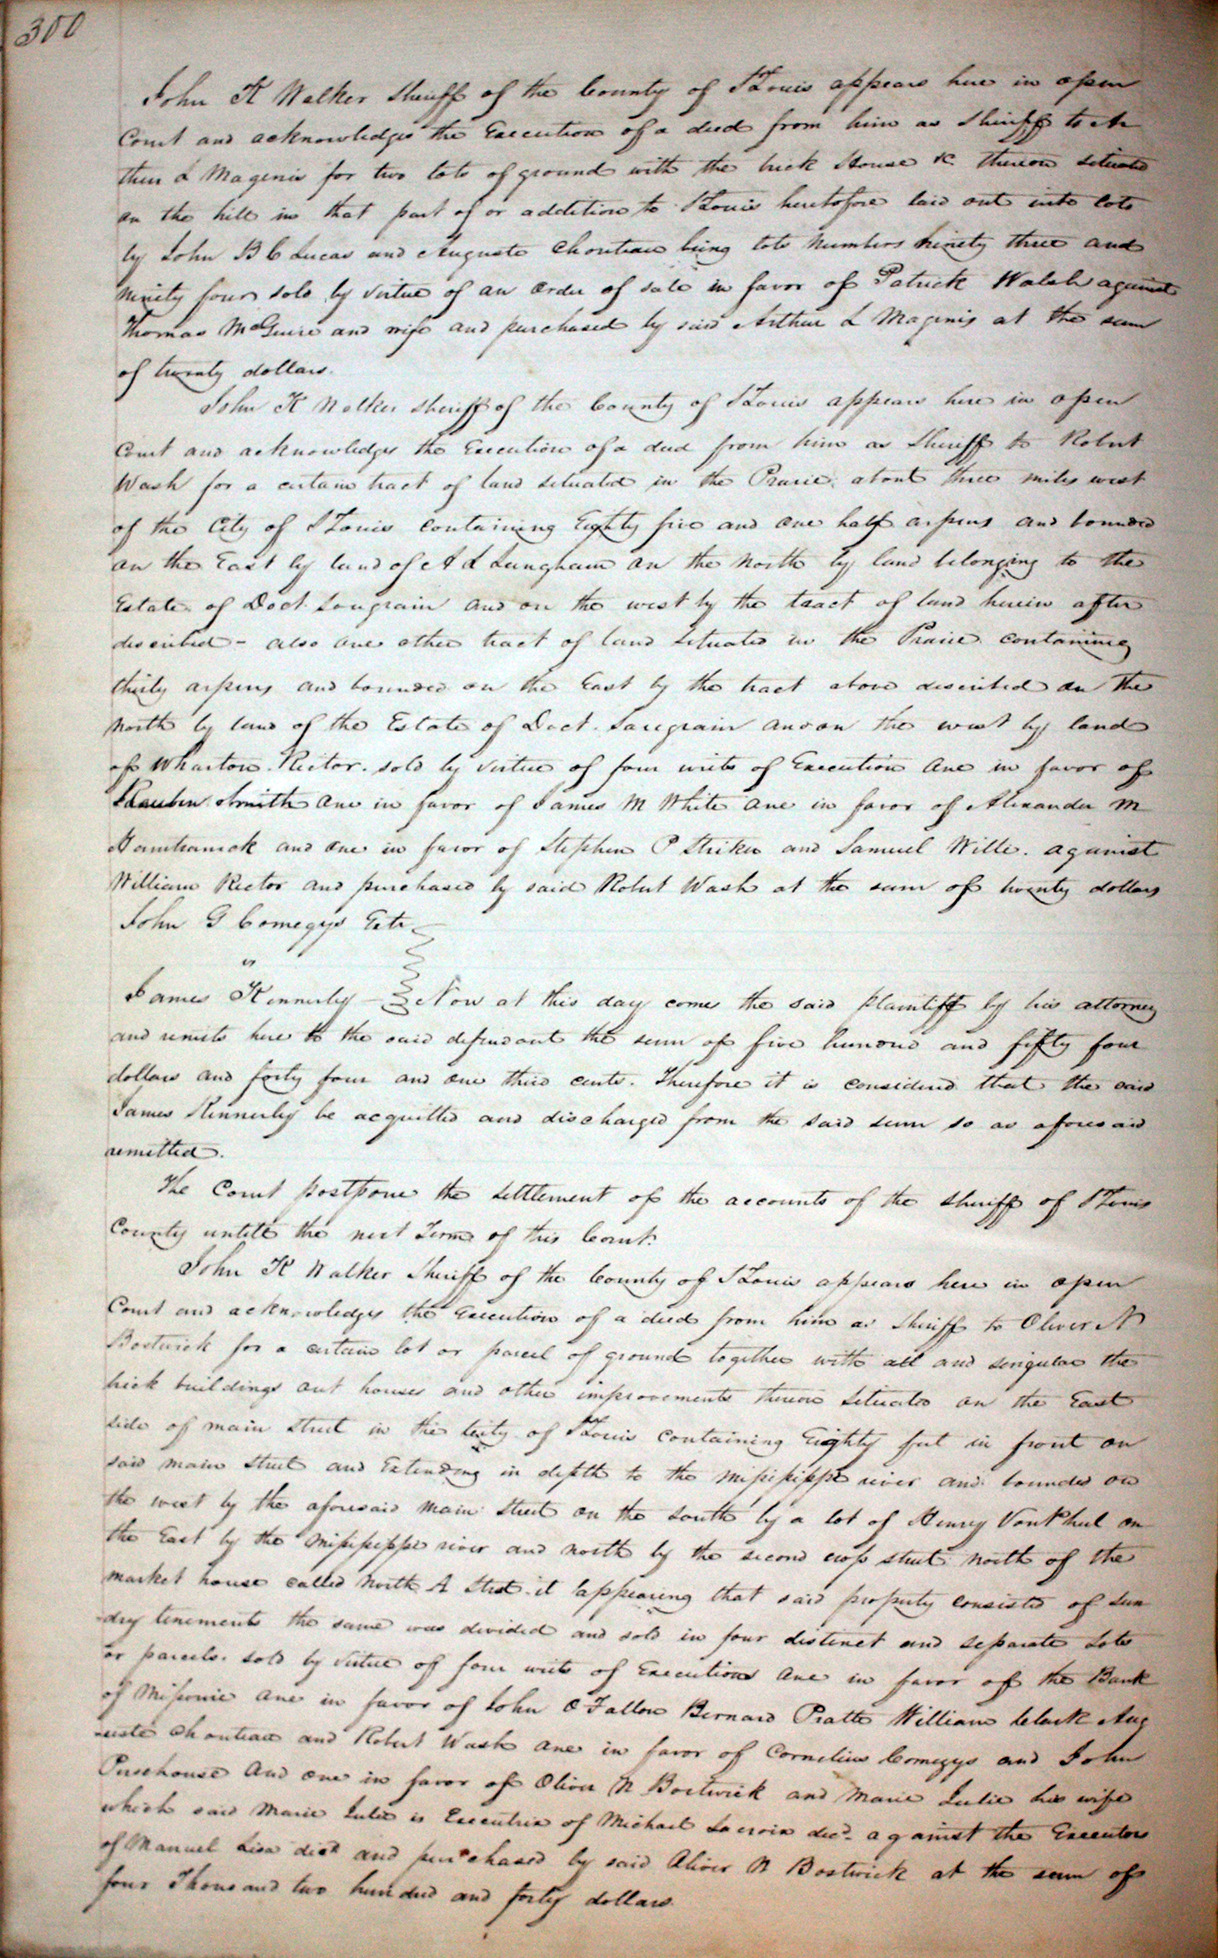 300
John K Walker Sheriff of the County of St Louis appears here in open
Court and acknowledges the Execution of a deed from him as Sheriff to Ar
thur L Magenis for two lots of ground with the brick House &c thereon situate
on the hill in that part of or addition to St Louis heretofore laid out into lots
by John B C Lucas and Auguste Chouteau being lots numbers ninety three and
ninety four sold by virtue of an order of sale in favor of Patrick Walsh against
Thomas McGuire and wife and purchased by said Arthur L Magenis at the sum
of twenty dollars.
John K Walker Sheriff of the County of St Louis appears here in open
Court and acknowledges the Execution of a deed from him as Sheriff to Robert
Wash for a certain tract of land situated in the Prairie about three miles west
of the City of St Louis containing Eighty five and one half arpens and bounded
on the East by land of A L Langham on the North by land belonging to the
Estate of Doct. Saugrain and on the west by the tract of land herein after
described - also one other tract of land situated in the Prairie containing
thirty arpens and bounded on the East by the tract above described on the
North by land of the Estate of Doct. Saugrain and on the west by land
of Wharton Rector. sold by virtue of four writs of Execution one in favor of
Reuben Smith one in favor of James M White one in favor of Alexander M
Hamtramck and one in favor of Stephen P Striker and Samuel Wille. against
William Rector and purchased by said Robert Wash at the sum of twenty dollars
John G Comegys Extr
vs
James Kennerly - Now at this day comes the said plaintiff by his attorney
and remits here to the said defendant the sum of five hundred and fifty four
dollars and forty four and one third cents. Therefore it is considered that the said
James Kennerly be acquitted and discharged from the said sum so as aforesaid
remitted.
The Court postpone the settlement of the accounts of the sheriff of St Louis
County untill the next Term of this Court.
John K Walker Sheriff of the County of St Louis appears here in open
Court and acknowledges the Execution of a deed from him as Sheriff to Oliver N
Bostwick for a certain lot or parcel of ground together with all and singular the
brick buildings out houses and other improvements thereon situated on the East
side of main street in the city of St Louis containing Eighty feet in front on
said main street and Extending in depth to the Missisippi river and bounded on
the west by the aforesaid main street on the south by a lot of Henry Von Phul on
the East by the Missisippi river and north by the second cross street north of the
market house called North A Street. it appearing that said property consisted of sun
dry tenements the same was divided and sold in four distinct and separate lots
or parcels. sold by virtue of four writs of Execution one in favor of the Bank
of Missouri one in favor of John O Fallon Bernard Pratte William Clark Aug
uste Chouteau and Robert Wash one in favor of Cornelius Comegys and John
Pershouse and one in favor of Oliver N Bostwick and Marie Julie his wife
which said Marie Julie is Executrix of Michael Lacroix decd. against the Executors
of Manuel Lisa decd and purchased by said Oliver N Bostwick at the sum of
four Thousand two hundred and forty dollars.